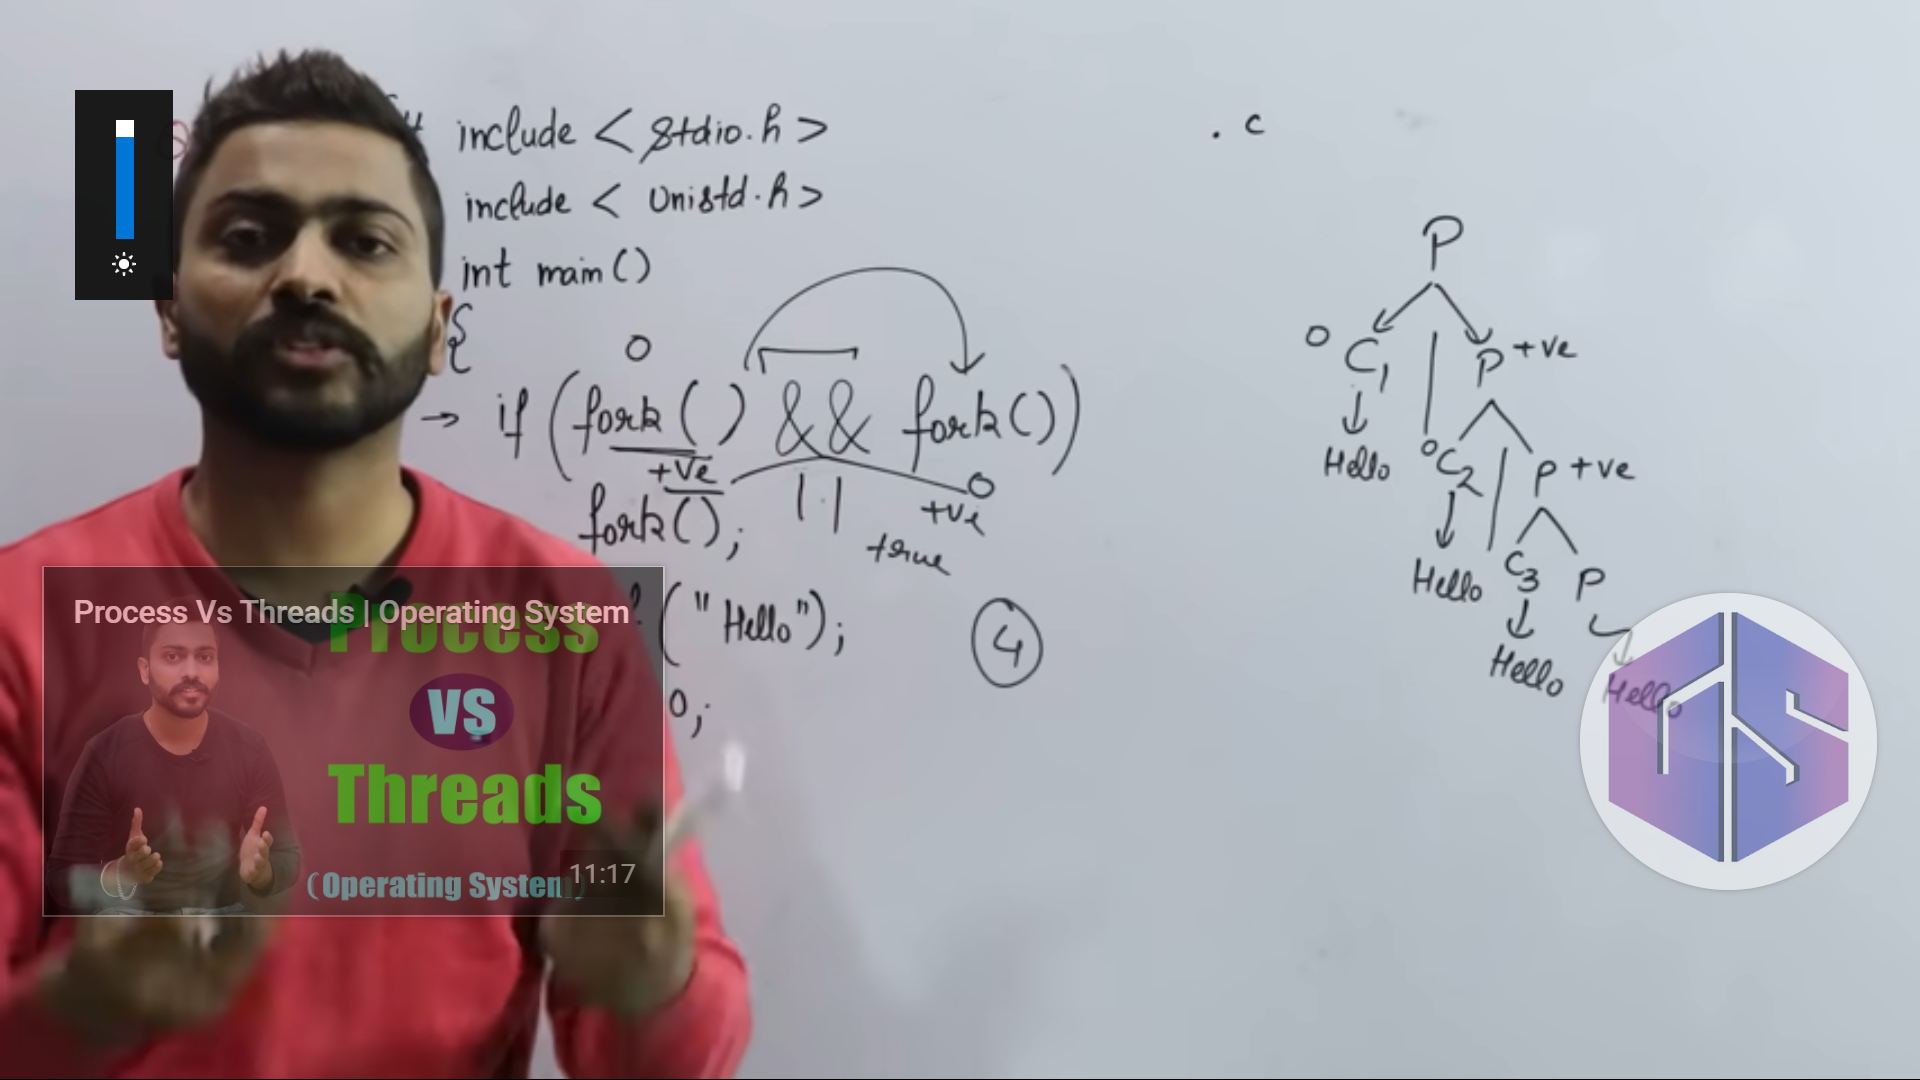 # include < stdio.h >
include < unistd.h >
int main()
{
0
→ if (fork() && fork())
+ve
0
+ve
fork();
1.1
true
("Hello");
4
0;
. c
P
0 C1 P +ve
Hello 0 C2 P +ve
Hello C3 P
Hello Hello
Process Vs Threads | Operating System
Process
VS
Threads
(Operating System)
11:17